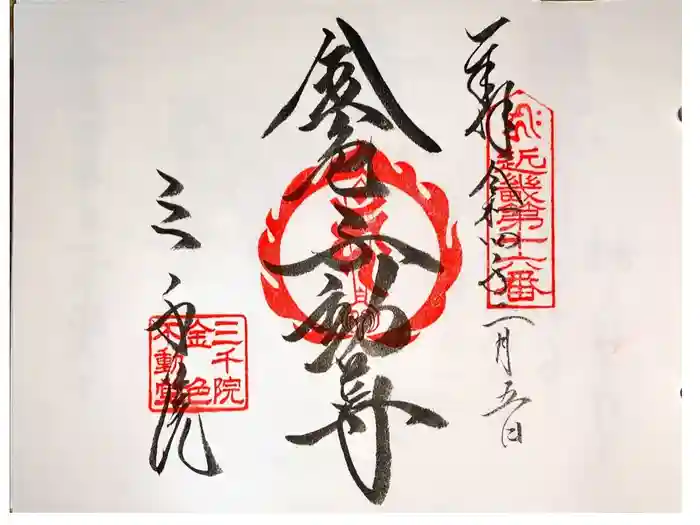 奉拝
令和四年
一月五日
近畿第十六番
金色不動尊
三千院
三千院
金色
不動堂